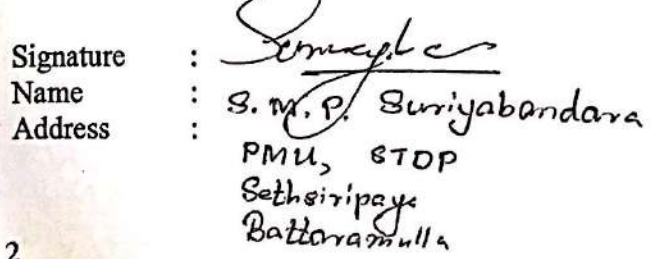 Signature :
Name : S. M. P. Suriyabandara
Address :
PMU, STDP
Sethsiripaya
Battaramulla
2